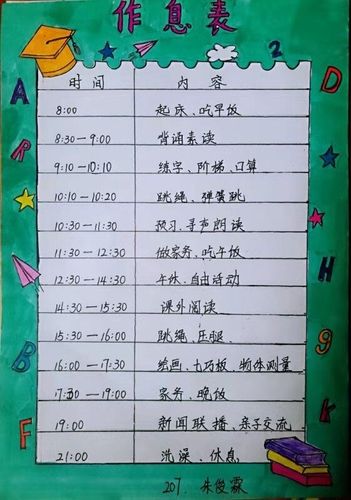 作息表
2
A
D
R
H
B
9
F
K
时间 内容
8:00 起床、吃早饭
8:30—9:00 背诵素读
9:10—10:10 练字、阶梯、口算
10:10—10:20 跳绳、弹簧跳
10:30—11:30 预习、寻声朗读
11:30—12:30 做家务、吃午饭
12:30—14:30 午休、自由活动
14:30—15:30 课外阅读
15:30—16:00 跳绳、压腿
16:00—17:30 绘画、七巧板、物体测量
17:30—19:00 家务、晚饭
19:00 新闻联播、亲子交流
21:00 洗澡、休息
207. 朱俊霖